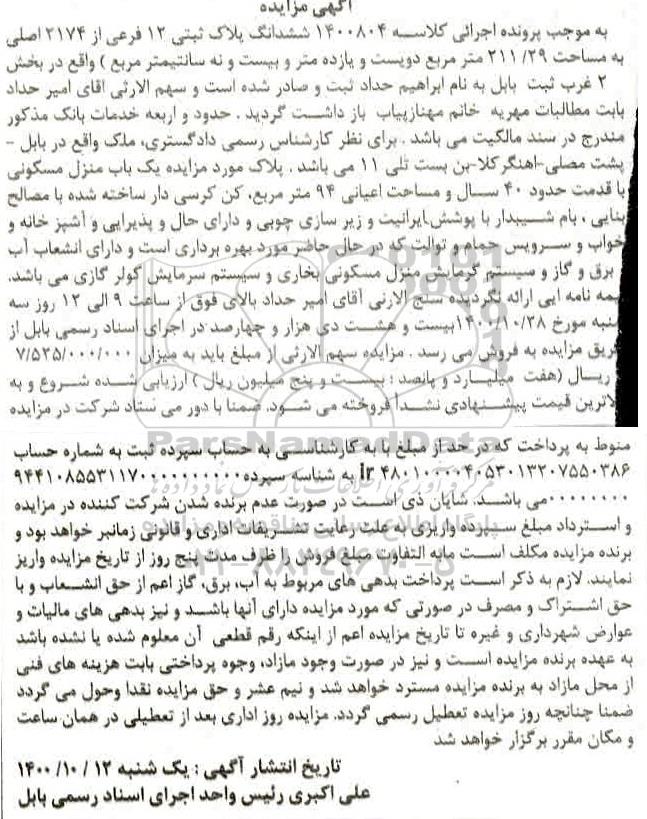 آگهی مزایده
به موجب پرونده اجرائی کلاسه ۱۴۰۰۸۰۴ ششدانگ پلاک ثبتی ۱۲ فرعی از ۲۱۷۴ اصلی
به مساحت ۲۱۱/۲۹ متر مربع دویست و یازده متر و بیست و نه سانتیمتر مربع ) واقع در بخش
۲ غرب ثبت بابل به نام ابراهیم حداد ثبت و صادر شده است و سهم الارثی اقای امیر حداد
بابت مطالبات مهریه خانم مهنازپیاب باز داشت گردید . حدود و اربعه خدمات بانک مذکور
مندرج در سند مالکیت می باشد . برای نظر کارشناس رسمی دادگستری، ملک واقع در بابل -
پشت مصلی-اهنگرکلا-بن بست تلی ۱۱ می باشد . پلاک مورد مزایده یک باب منزل مسکونی
با قدمت حدود ۴۰ سال و مساحت اعیانی ۹۴ متر مربع، کن کرسی دار ساخته شده با مصالح
بنایی ، بام شیبدار با پوشش ایرانیت و زیر سازی چوبی و دارای حال و پذیرایی و آشپز خانه و
خواب و سرویس حمام و توالت که در حال حاضر مورد بهره برداری است و دارای انشعاب آب
برق و گاز و سیستم گرمایش منزل مسکونی بخاری و سیستم سرمایش کولر گازی می باشد.
بیمه نامه ایی ارائه نگردیده سلج الارنی آقای امیر حداد بالای فوق از ساعت ۹ الی ۱۲ روز سه
شنبه مورخ ۱۴۰۰/۱۰/۲۸بیست و هشت دی هزار و چهارصد در اجرای اسناد رسمی بابل از
طریق مزایده به فروش می رسد . مزایده سهم الارثی از مبلغ باید به میزان ۷/۵۲۵/۰۰۰/۰۰۰
ریال (هفت میلیارد و پانصد : بیست و پنج میلیون ریال ) ارزیابی شده شروع و به
بالاترین قیمت پیشنهادی نشدا فروخته می شود. ضمنا با دور می ستاد شرکت در مزایده
منوط به پرداخت که در حد از مبلغ با به کارشناسی به حساب سپرده ثبت به شماره حساب
ir ۴۸۰۱۰۰۰۰۴۰۵۳۰۱۳۲۰۷۵۵۰۳۸۶ به شناسه سپرده ۹۴۴۱۰۸۵۵۳۱۱۷۰۰۰۰۰۰۰۰۰۰۰۰
۰۰۰۰۰۰۰۰می باشد. شایان ذی است در صورت عدم برنده شدن شرکت کننده در مزایده
و استرداد مبلغ سپرده واریزی به علت رعایت تشریفات اداری و قانونی زمانبر خواهد بود و
برنده مزایده مکلف است مابه التفاوت مبلغ فروش را ظرف مدت پنج روز از تاریخ مزایده واریز
نمایند. لازم به ذکر است پرداخت بدهی های مربوط به آب، برق، گاز اعم از حق انشعاب و با
حق اشتراک و مصرف در صورتی که مورد مزایده دارای آنها باشد و نیز بدهی های مالیات و
عوارض شهرداری و غیره تا تاریخ مزایده اعم از اینکه رقم قطعی آن معلوم شده یا نشده باشد
به عهده برنده مزایده است و نیز در صورت وجود مازاد، وجوه پرداختی بابت هزینه های فنی
از محل مازاد به برنده مزایده مسترد خواهد شد و نیم عشر و حق مزایده نقدا وحول می گردد
ضمنا چنانچه روز مزایده تعطیل رسمی گردد. مزایده روز اداری بعد از تعطیلی در همان ساعت
و مکان مقرر برگزار خواهد شد
تاریخ انتشار آگهی : یک شنبه ۱۲ / ۱۰/ ۱۴۰۰
علی اکبری رئیس واحد اجرای اسناد رسمی بابل
ParsNamadData